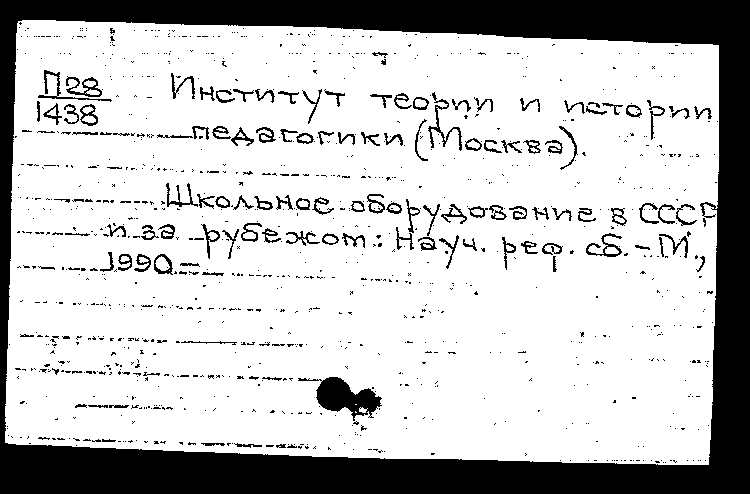 П28
1438
Институт теории и истории
педагогики (Москва).
Школьное оборудование в СССР
и за рубежом: Науч. реф. сб. - М.,
1990 -